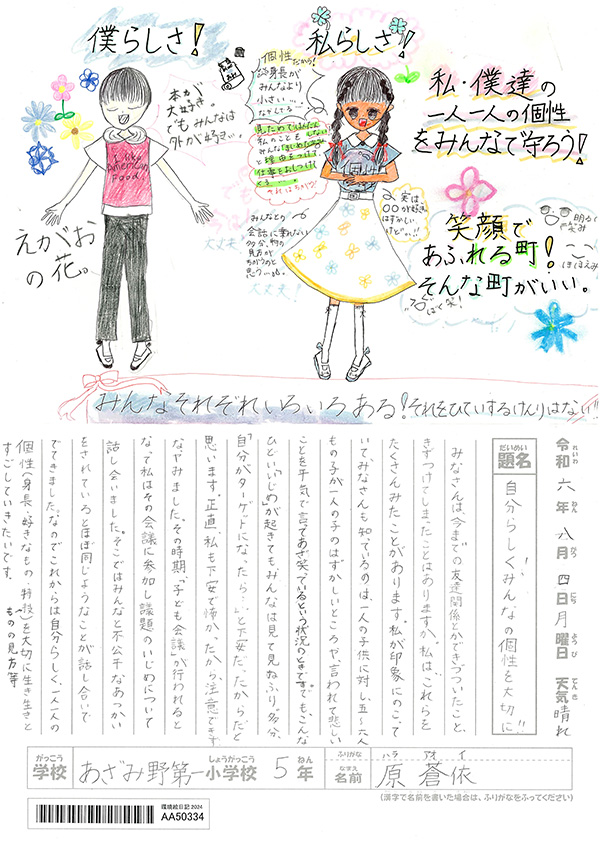 僕らしさ!
私らしさ!
本が
大好き。
でもみんなは
外が好き…
個性だから!
身長が
みんなより
小さい…
私・僕達の
一人一人の個性
をみんなで守ろう!
I like
American
Food
えがお
の花。
みんなとの
会話に乗れない
多分、物の
見方が
ちがうのと
思う…。
大丈夫!
笑顔で
あふれる町!
そんな町がいい。
ほほえみ
みんなそれぞれいろいろある!それをひていするけんりはない!!
令和六年八月四日月曜日 天気晴れ
れいわ ねん がつ にち ようび てんき
だいめい
題名
自分らしくみんなの個性を大切に!!
みなさんは、今までの友達関係とかできづついたこと、
きずつけてしまったことはありますか。私は、これらを
たくさんみたことがあります。私が印象にのこって
いて、みなさんも知っているのは、一人の子供に対し、五～六人
もの子が一人の子のはずかしいところや、言われて悲しい
ことを平気で言ってあざ笑っているという状況のときです。でも、こんな
ひどい「いじめ」が起きてもみんなは見て見ぬふり。多分、
「自分がターゲットになったら…」と不安だったからだと
思います。正直、私も不安で怖かったから、注意できず
なやみました。その時期、「子ども会議」が行われると
なって私はその会議に参加し議題のいじめについて
話し合いました。そこではみんなと不公平なあつかい
をされているとほぼ同じようなことが話し合いで
でてきました。なのでこれからは自分らしく、一人一人の
個性(身長・好きなもの・特技・ものの見方等)を大切に生き生きと
すごしていきたいです。
がっこう しょうがっこう ねん
学校 あざみ野第一小学校 5年
ふりがな ハラ アオイ
なまえ
名前 原 蒼依
(漢字で名前を書いた場合は、ふりがなをふってください)
環境絵日記2024
AA50334